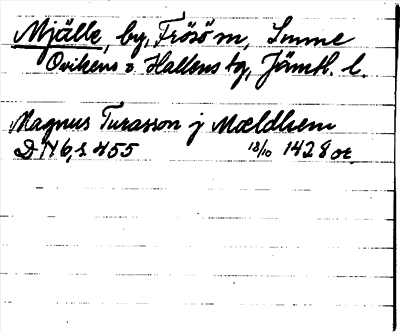 Mjälle, by, Frösö sn, Sunne
Ovikens o Hallens tg, Jämtl. l.
Magnus Turasson j Mældhem
DN 6, s 455 13/10 1428 or.